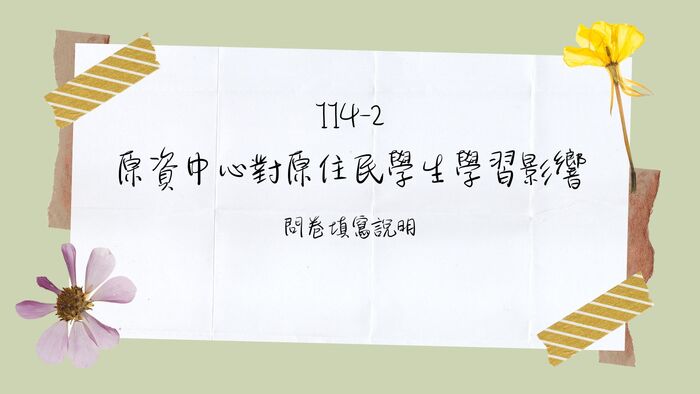 114-2
原資中心對原住民學生學習影響
問卷填寫說明